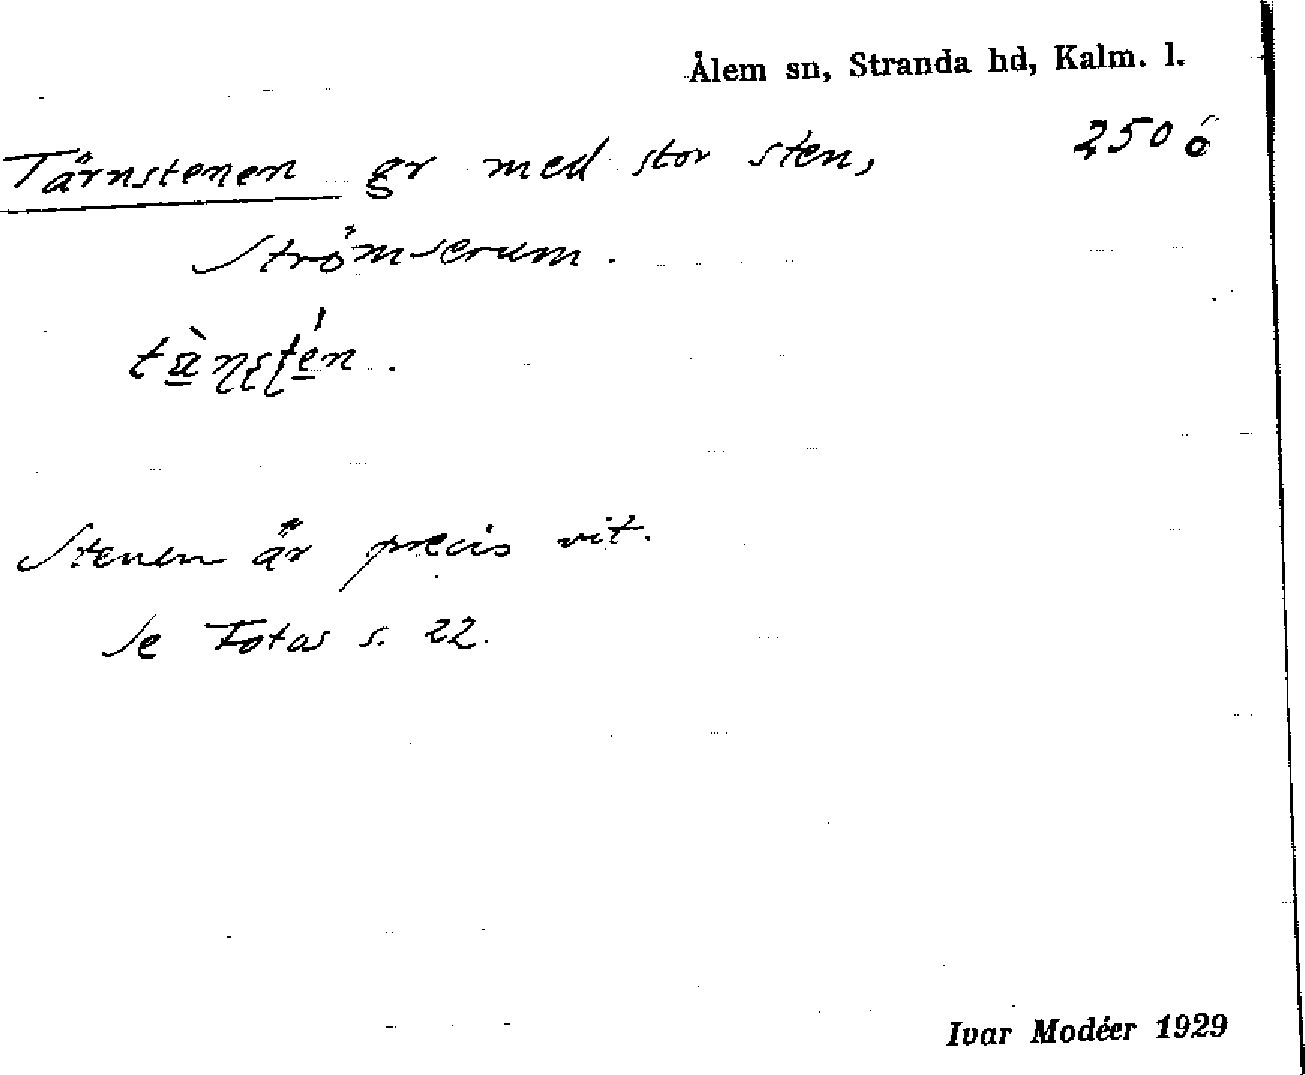 Ålem sn, Stranda hd, Kalm. l.
Tärnstenen gr med stor sten, 250 ó
Strömserum.
Stenen är precis vit.
Se Fotos s. 22.
Ivar Modéer 1929